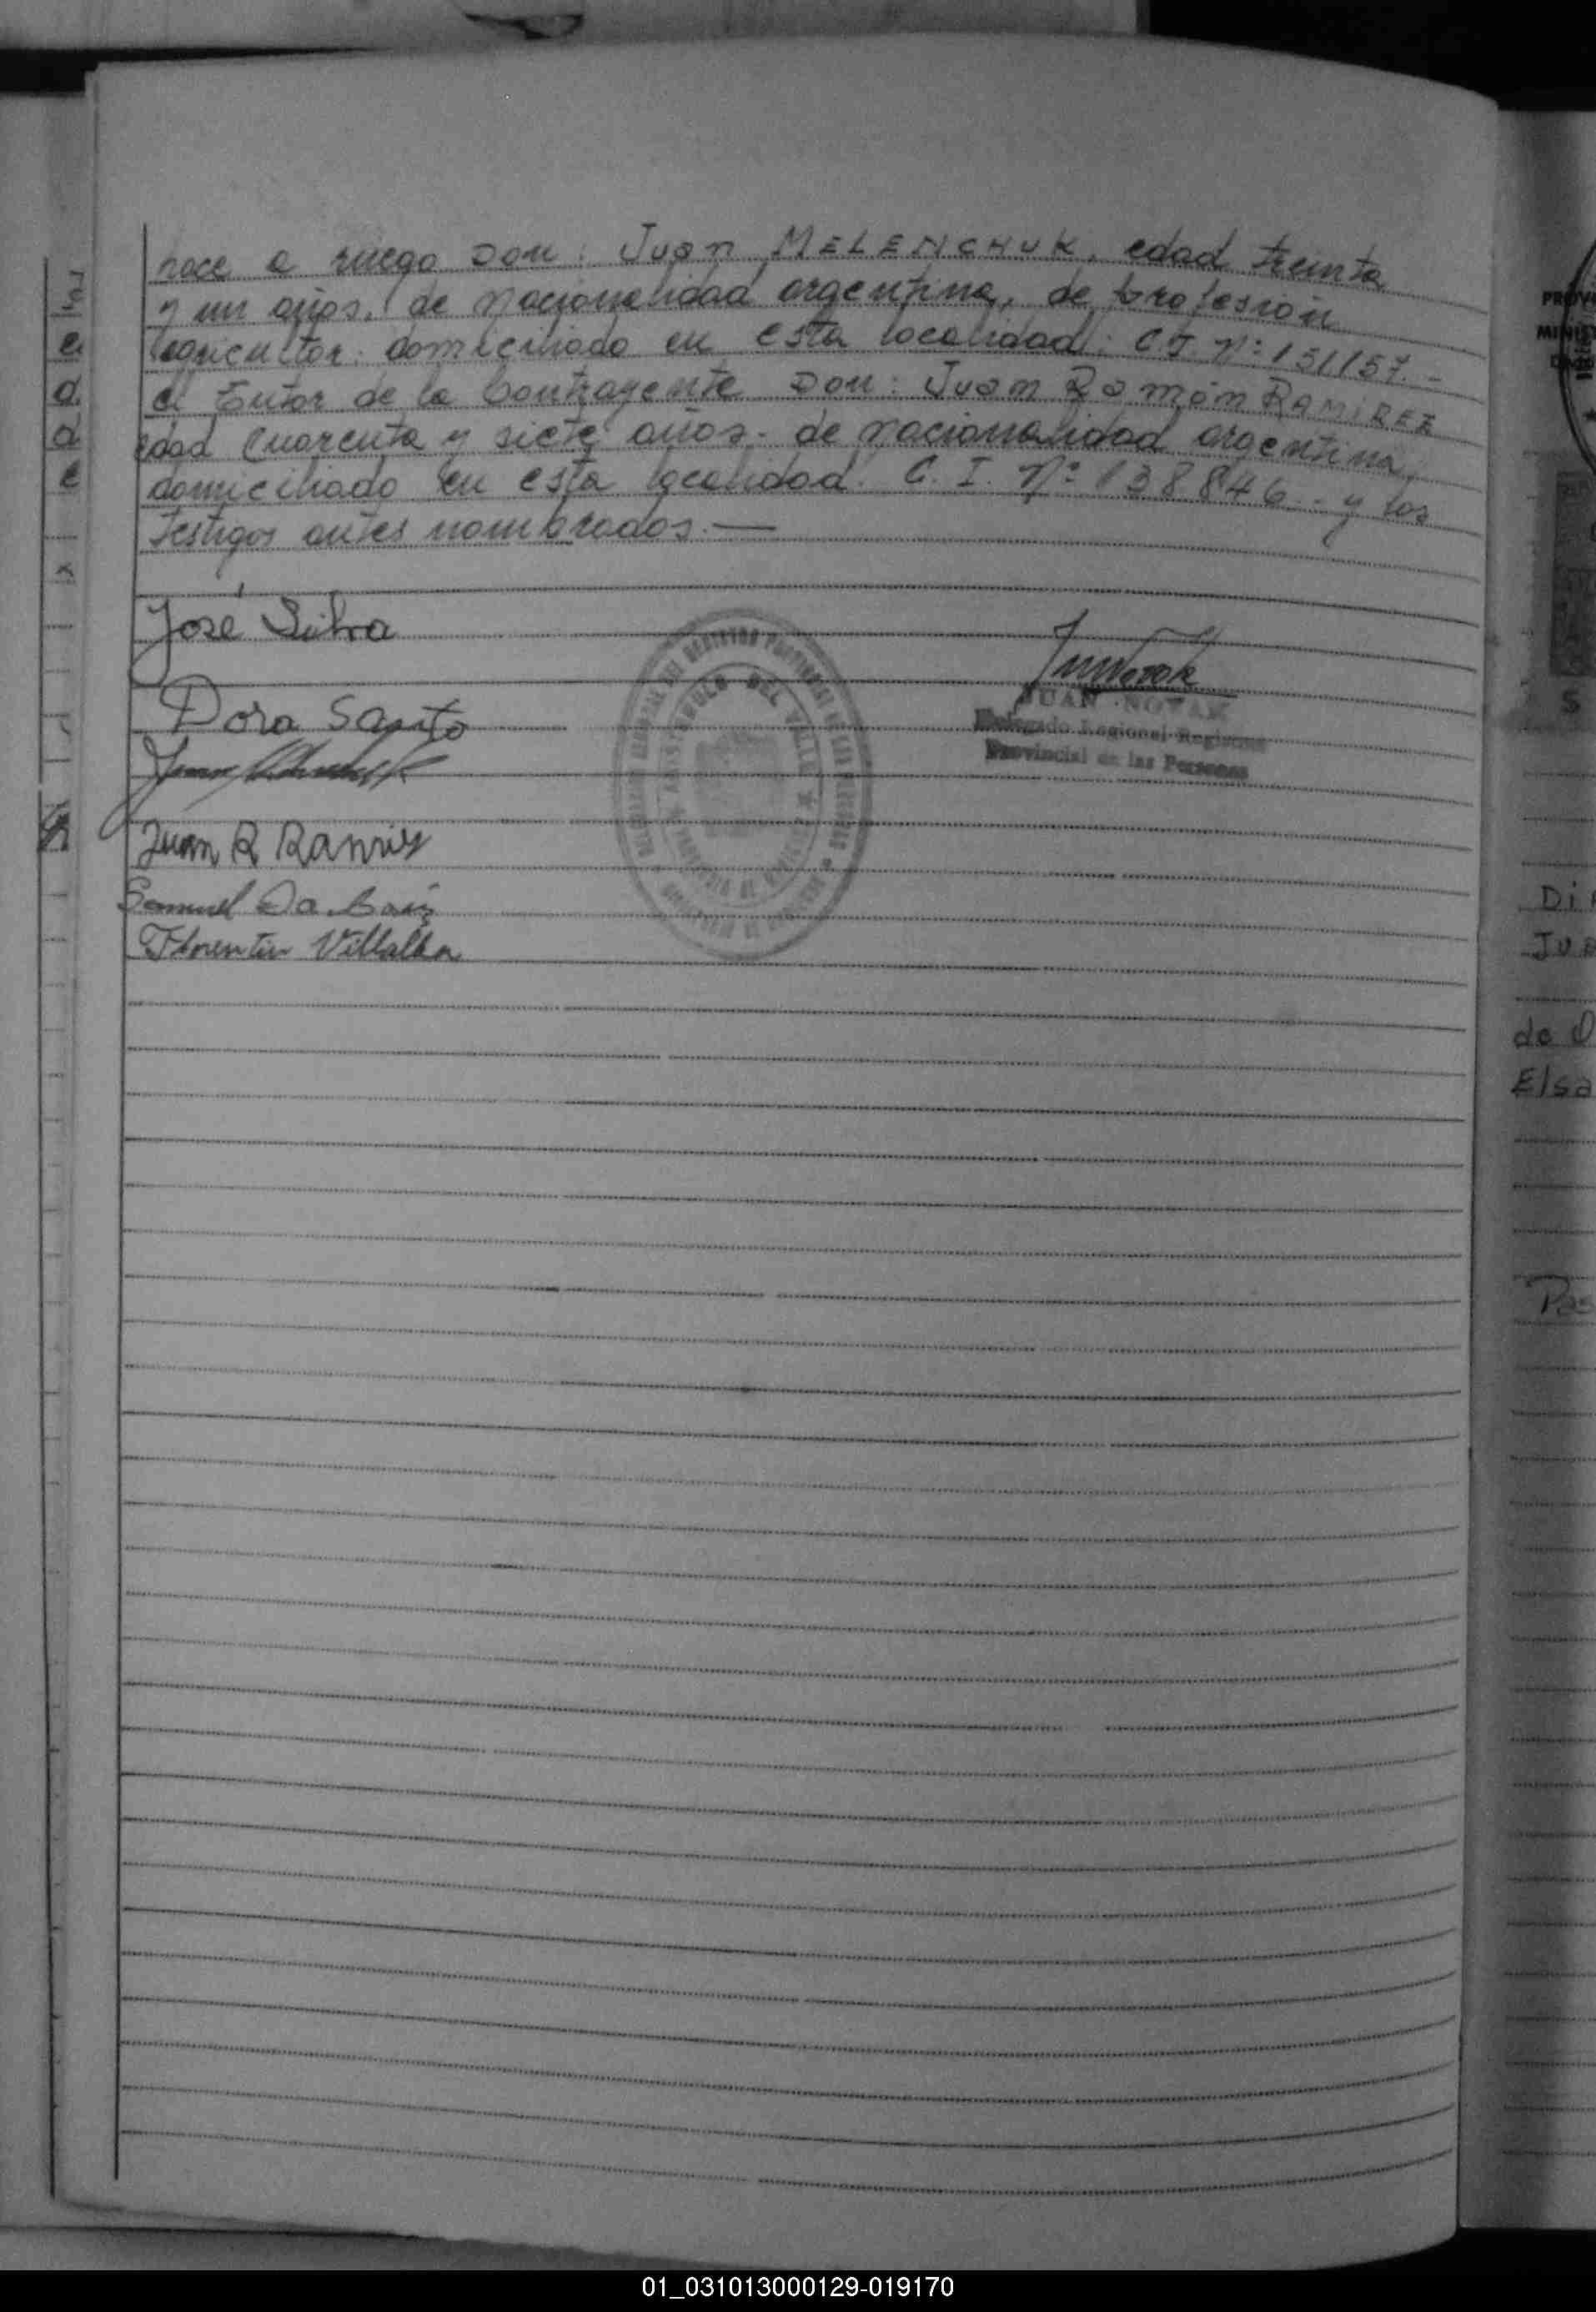 hace a ruego Don: Juan MELENCHUK, edad treinta
y un años, de nacionalidad argentina, de profesión
agricultor. domiciliado en esta localidad. C.I. Nº 151157.-
el Tutor de la Contrayente Don: Juan Ramón RAMIREZ
edad cuarenta y siete años. de nacionalidad argentina,
domiciliado en esta localidad. C. I. Nº 138846.- y los
testigos antes nombrados.—
José Silva
Dora Santo
JUAN NOVAK
Delegado Regional Registro
Provincial de las Personas
Juan R Ramirez
Samuel Da
Florentin Villalba
01_031013000129-019170